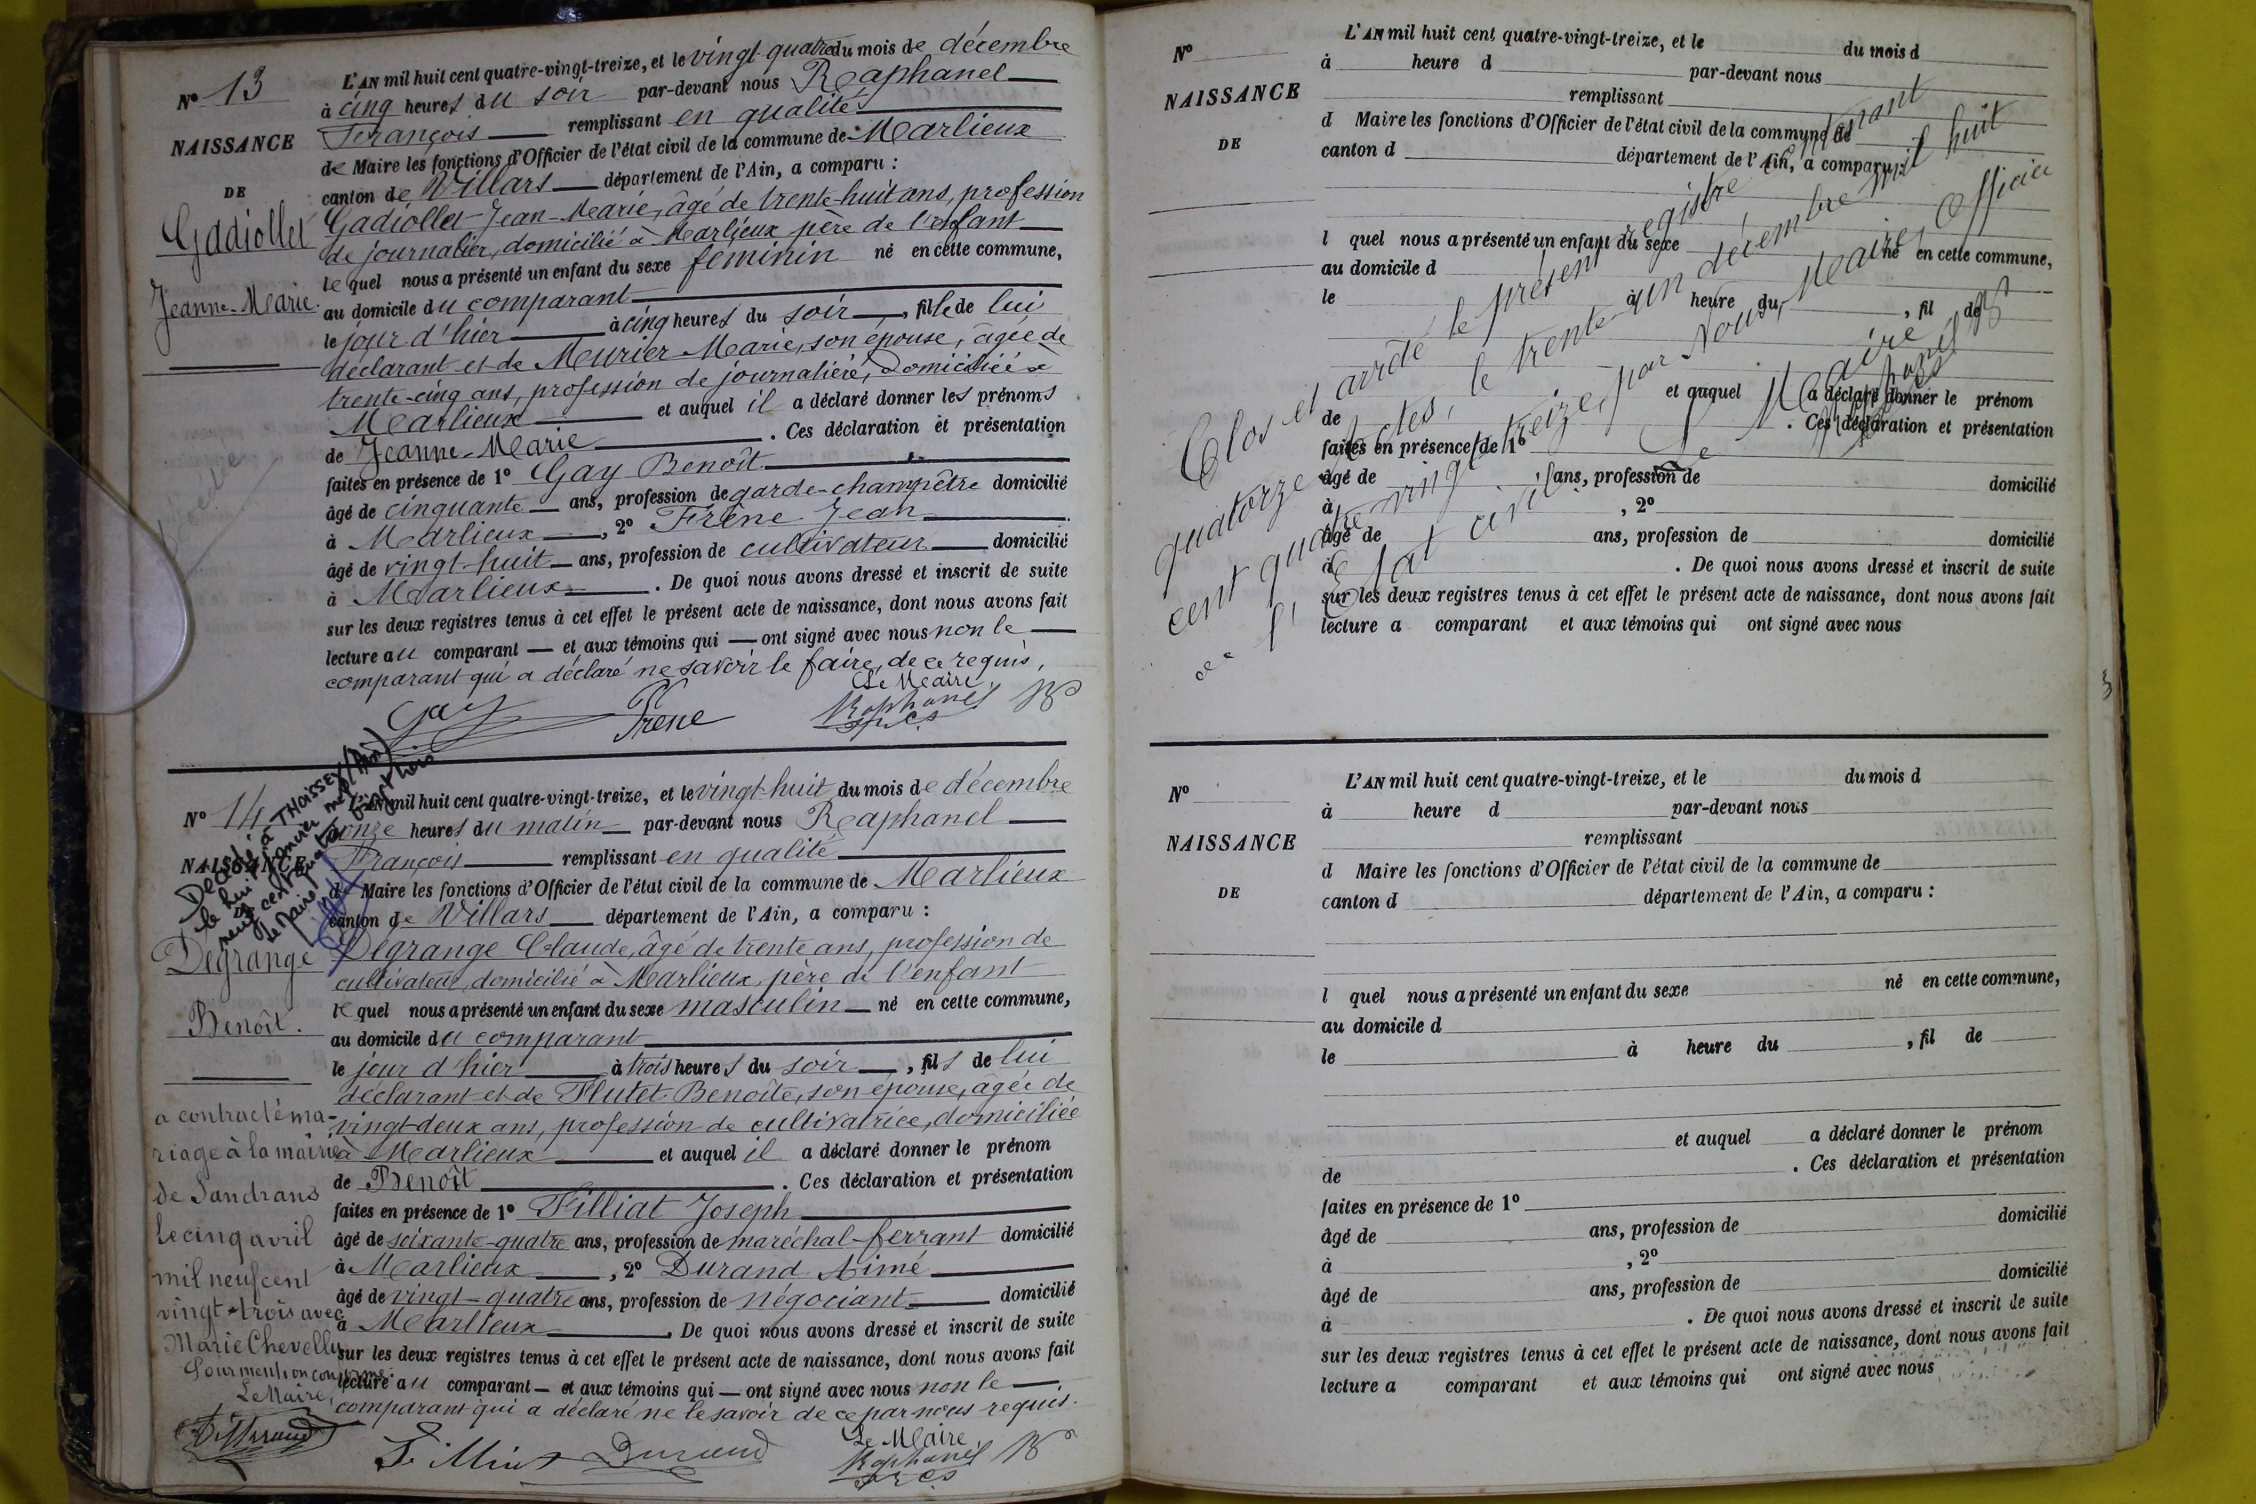 N° 13
NAISSANCE
DE
Gadiollet
Jeanne-Marie.
L'AN mil huit cent quatre-vingt-treize, et le vingt-quatre du mois de décembre
à cinq heures du soir par-devant nous Raphanel
François remplissant en qualité
de Maire les fonctions d'Officier de l'état civil de la commune de Marlieux
canton de Villars département de l'Ain, a comparu :
Gadiollet Jean-Marie, âgé de trente-huit ans, profession
de journalier, domicilié à Marlieux père de l'enfant
lequel nous a présenté un enfant du sexe féminin né en cette commune,
au domicile du comparant
le jour d'hier à cinq heures du soir, fille de lui
déclarant et de Meurier Marie, son épouse, âgée de
trente-cinq ans, profession de journalière, domiciliée à
Marlieux et auquel il a déclaré donner les prénoms
de Jeanne-Marie. Ces déclaration et présentation
faites en présence de 1° Gay Benoît
âgé de cinquante ans, profession de garde-champêtre domicilié
à Marlieux, 2° Frêne Jean
âgé de vingt-huit ans, profession de cultivateur domicilié
à Marlieux. De quoi nous avons dressé et inscrit de suite
sur les deux registres tenus à cet effet le présent acte de naissance, dont nous avons fait
lecture au comparant et aux témoins qui ont signé avec nous non le
comparant qui a déclaré ne savoir le faire, de ce requis.
Le Maire
Gay Frene Raphanel
N° 14
NAISSANCE
DE
Degrange
Benoît.
Décédé à THOISSEY (Ain)
le huit janvier mil
neuf cent quatre vingt trois
le Maire
L'AN mil huit cent quatre-vingt-treize, et le vingt-huit du mois de décembre
à onze heures du matin par-devant nous Raphanel
François remplissant en qualité
de Maire les fonctions d'Officier de l'état civil de la commune de Marlieux
canton de Villars département de l'Ain, a comparu :
Degrange Claude, âgé de trente ans, profession de
cultivateur, domicilié à Marlieux, père de l'enfant
lequel nous a présenté un enfant du sexe masculin né en cette commune,
au domicile du comparant
le jour d'hier à trois heures du soir, fils de lui
déclarant et de Flutet Benoîte, son épouse, âgée de
vingt-deux ans, profession de cultivatrice, domiciliée
à Marlieux et auquel il a déclaré donner le prénom
de Benoît. Ces déclaration et présentation
faites en présence de 1° Filliat Joseph
âgé de soixante-quatre ans, profession de maréchal-ferrant domicilié
à Marlieux, 2° Durand Aimé
âgé de vingt-quatre ans, profession de négociant domicilié
à Marlieux. De quoi nous avons dressé et inscrit de suite
sur les deux registres tenus à cet effet le présent acte de naissance, dont nous avons fait
lecture au comparant et aux témoins qui ont signé avec nous non le
comparant qui a déclaré ne le savoir de ce par nous requis.
Le Maire
Durand Raphanel
a contracté ma-
riage à la mairie
de Sandrans
le cinq avril
mil neuf cent
vingt-trois avec
Marie Chevelly
Pour mention conforme
Le Maire,
N°
NAISSANCE
DE
L'AN mil huit cent quatre-vingt-treize, et le du mois d
à heure d par-devant nous
remplissant
d Maire les fonctions d'Officier de l'état civil de la commune de
canton d département de l'Ain, a comparu :
l quel nous a présenté un enfant du sexe né en cette commune,
au domicile d
le à heure du , fil de
et auquel a déclaré donner le prénom
de . Ces déclaration et présentation
faites en présence de 1°
âgé de ans, profession de domicilié
à , 2°
âgé de ans, profession de domicilié
à . De quoi nous avons dressé et inscrit de suite
sur les deux registres tenus à cet effet le présent acte de naissance, dont nous avons fait
lecture a comparant et aux témoins qui ont signé avec nous
Clos et arrêté le présent registre comprenant
quatorze actes, le trente-un décembre mil huit
cent quatre vingt treize, par Nous, Maire, Officier
de l'Etat civil.
Le Maire
Raphanel
N°
NAISSANCE
DE
L'AN mil huit cent quatre-vingt-treize, et le du mois d
à heure d par-devant nous
remplissant
d Maire les fonctions d'Officier de l'état civil de la commune de
canton d département de l'Ain, a comparu :
l quel nous a présenté un enfant du sexe né en cette commune,
au domicile d
le à heure du , fil de
et auquel a déclaré donner le prénom
de . Ces déclaration et présentation
faites en présence de 1°
âgé de ans, profession de domicilié
à , 2°
âgé de ans, profession de domicilié
à . De quoi nous avons dressé et inscrit de suite
sur les deux registres tenus à cet effet le présent acte de naissance, dont nous avons fait
lecture a comparant et aux témoins qui ont signé avec nous